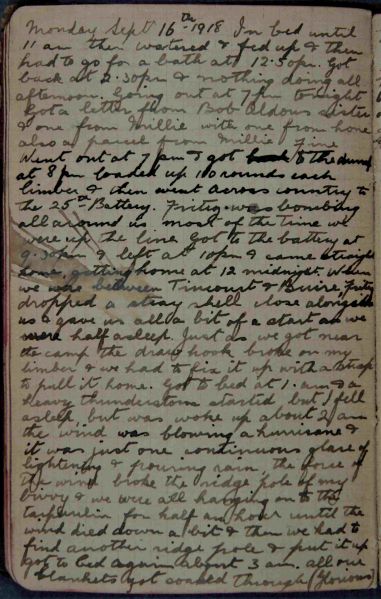 Monday Sept 16th 1918 In bed until
11 am then watered & fed up & then
had to go for a bath at 12.50pm. Got
back at 2.30pm & nothing doing all
afternoon. Going out at 7 pm tonight
Got a letter from Bob Aldous sister
& one from Millie with one from home
also a parcel from Millie, Fine
Went out at 7 pm & got to the dump
at 8 pm loaded up 110 rounds each
limber & then went across country to
the 25th Battery. Fritz was bombing
all around us most of the time we
were up the line. Got to the battery at
9.30pm & left at 10pm & came straight
home, getting home at 12 midnight. When
we was between Tincourt & Buire Fritz
dropped a stray shell close alongside
us & gave us all a bit of a start as we
were half asleep. Just as we got near
the camp the draw hook broke on my
limber & we had to fix it up with a strap
to pull it home. Got to bed at 1. am & a
heavy thunderstorm started but I fell
asleep, but was woke up about 2 am
the wind was blowing a hurricane &
it was just one continuous glare of
lightning & pouring rain, the force of
the wind broke the ridge pole of my
bivvy & we were all hanging on to the
tarpaulin for half an hour until the
wind died down a bit & then we had to
find another ridge pole & put it up
got to bed again about 3 am. all our
blankets got soaked through (Glorious)